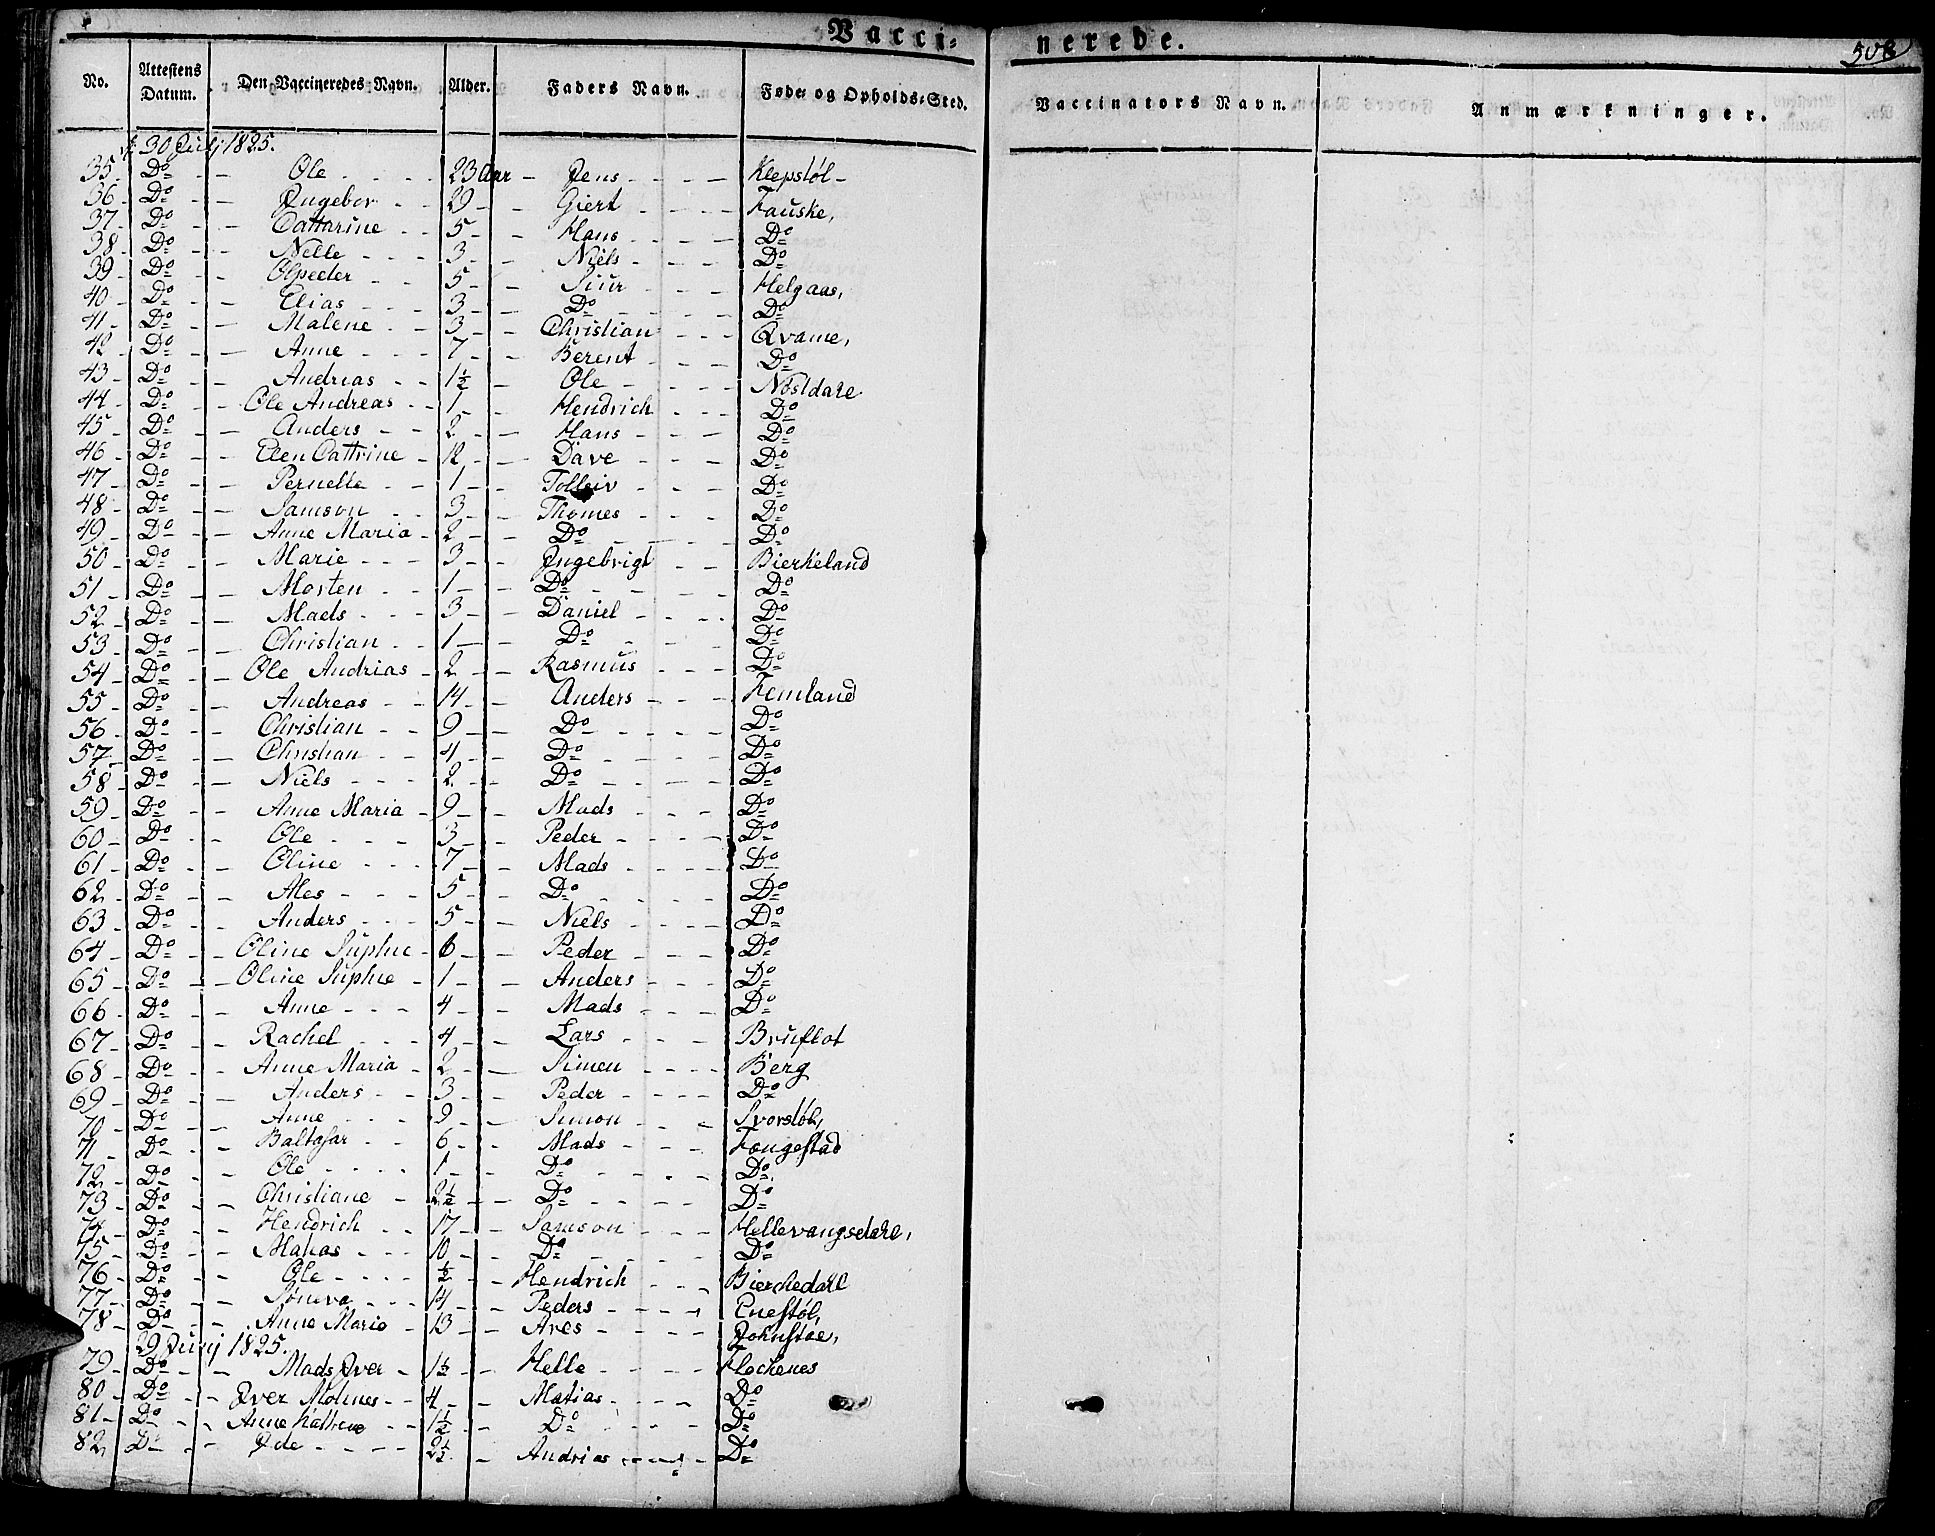 Vacci- nerede. 508
No. Attestens Datum. Den Vaccineredes Navn. Alder. Faders Navn. Føde- og Opholds-Sted. Vaccinators Navn. Anmærkninger.
30 Julj 1825.
35 - Do - - Ole - - - 23 Aar - Jens - - - Klepstøl -
36 - Do - - Ingebor - - 29 - - Giert - - - Fauske,
37 - Do - - Cattarine - - 5 - - Hans - - - Do
38 - Do - - Nelle - - - 3 - - Niels - - - Do
39 - Do - - Olpeder - - 5 - - Siur - - - Helgaas,
40 - Do - - Elias - - - 3 - - Do - - - Do
41 - Do - - Malene - - 3 - - Christian - - - Qvame,
42 - Do - - Anne - - - 7 - - Berent - - - Do
43 - Do - - Andrias - - 1½ - Ole - - - Nøstdale
44 - Do - - Ole Andreas - - 1 - - Hendrich - - - Do
45 - Do - - Anders - - 2 - - Hans - - - Do
46 - Do - - Elen Cattrine - 12 - - Dave - - - Do
47 - Do - - Pernelle - - 1 - - Tolleiv - - - Do
48 - Do - - Samson - - 3 - - Thomes - - - Do
49 - Do - - Anne Maria - 2 - - Do - - - Do
50 - Do - - Marie - - - 3 - - Ingebrigt - - Bierkeland
51 - Do - - Morten - - 1 - - Do - - - Do
52 - Do - - Mads - - - 3 - - Daniel - - - Do
53 - Do - - Christian - - 1 - - Do - - - Do
54 - Do - - Ole Andrias - 2 - - Rasmus - - - Do
55 - Do - - Andreas - - 14 - - Anders - - - Femland
56 - Do - - Christian - - 9 - - Do - - - Do
57 - Do - - Christian - - 4 - - Do - - - Do
58 - Do - - Niels - - - 2 - - Do - - - Do
59 - Do - - Anne Maria - 9 - - Mads - - - Do
60 - Do - - Ole - - - 3 - - Peder - - - Do
61 - Do - - Oline - - - 7 - - Mads - - - Do
62 - Do - - Ales - - - 5 - - Do - - - Do
63 - Do - - Anders - - - 5 - - Niels - - - Do
64 - Do - - Oline Suphie - 6 - - Peder - - - Do
65 - Do - - Oline Suphie - 1 - - Anders - - - Do
66 - Do - - Anne - - - 4 - - Mads - - - Do
67 - Do - - Rachel - - - 4 - - Lars - - - Bruflot
68 - Do - - Anne Maria - 2 - - Simen - - - Berg
69 - Do - - Anders - - 3 - - Peder - - - Do
70 - Do - - Anne - - - 9 - - Simon - - - Svorstøl,
71 - Do - - Baltasar - - 6 - - Mads - - - Fongestad
72 - Do - - Ole - - - - 1 - - Do - - - Do
73 - Do - - Christiane - 2½ - - Do - - - Do
74 - Do - - Hendrich - - 17 - - Samson - - - Hellevangsdale,
75 - Do - - Matias - - - 10 - - Do - - - Do
76 - Do - - Ole - - - - ½ - - Hendrich - - - Bierchedale
77 - Do - - Søneva - - - 14 - - Peders - - - Enestøl,
78 - Do - - Anne Maria - 13 - - Ares - - - Johnstøe,
29 Junj 1825.
79 - Do - - Mads Iver - 1½ - - Helle - - - Flochenes
80 - Do - - Iver Molnes - - 4 - - Matias - - - Do
81 - Do - - Anne Kattrine 1½ - Do - - - Do
82 - Do - - Ide - - - - 2½ - Andrias - - - Do